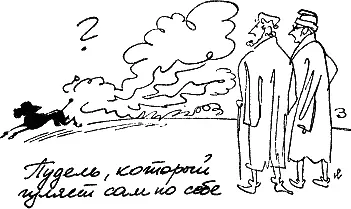 ?
Пудель, который
гуляет сам по себе